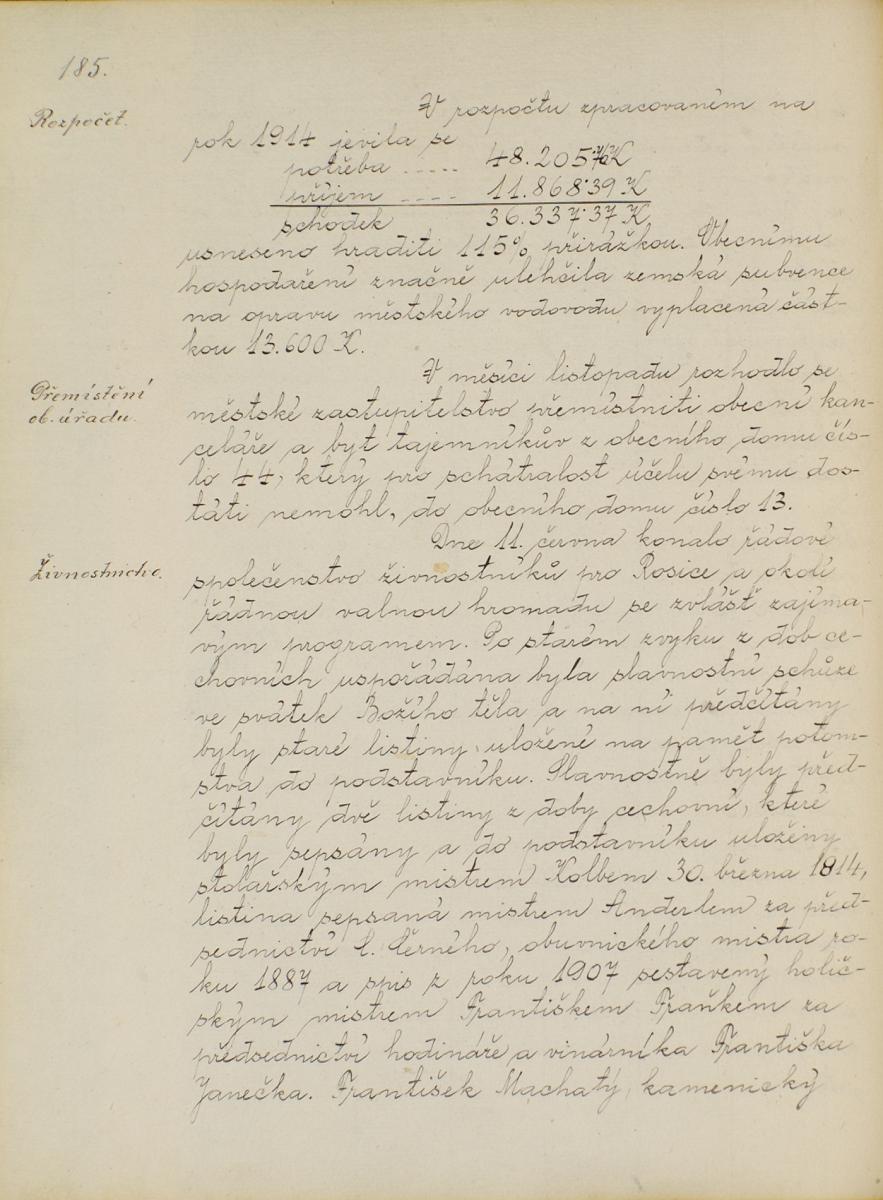 185.
Rozpočet.
V rozpočtu zpracovaném na
rok 1914 jevila se
potřeba ..... 48.205·76 K
příjem ..... 11.868·39 K
schodek 36.337·37 K
usneseno hraditi 115% přirážkou. Obecnímu
hospodaření značně ulehčila zemská subvence
na opravu městského vodovodu vyplacená část-
kou 13.600 K.
Přemístění
ob. úřadu.
V měsíci listopadu rozhodlo se
městské zastupitelstvo přemístniti obecní kan-
celáře a byt tajemníkův z obecního domu čís-
lo 44, který pro schátralost účelu svému dos-
táti nemohl, do obecního domu číslo 13.
Živnostnictvo.
Dne 11. června konalo řádové
společenstvo živnostníků pro Rosice a okolí
řádnou valnou hromadu se zvlášť zajíma-
vým programem. Po starém zvyku z dob ce-
chovních uspořádána byla slavnostní schůze
ve svátek Božího těla a na ní předčítány
byly staré listiny, uložené na pamět potom-
stva do podstavníku. Slavnostně byly před-
čítány dvě listiny z doby cechovní, které
byly sepsány a do podstavníku uloženy
stolařským mistrem Kolbem 30. března 1814,
listina sepsaná mistrem Anderlem za před-
sednictví C. Černého, obuvnického mistra ro-
ku 1887 a spis z roku 1907 sestavený holič-
ským mistrem Františkem Fraňkem za
předsednictví hodináře a vinárníka Františka
Janečka. František Machatý, kamenický